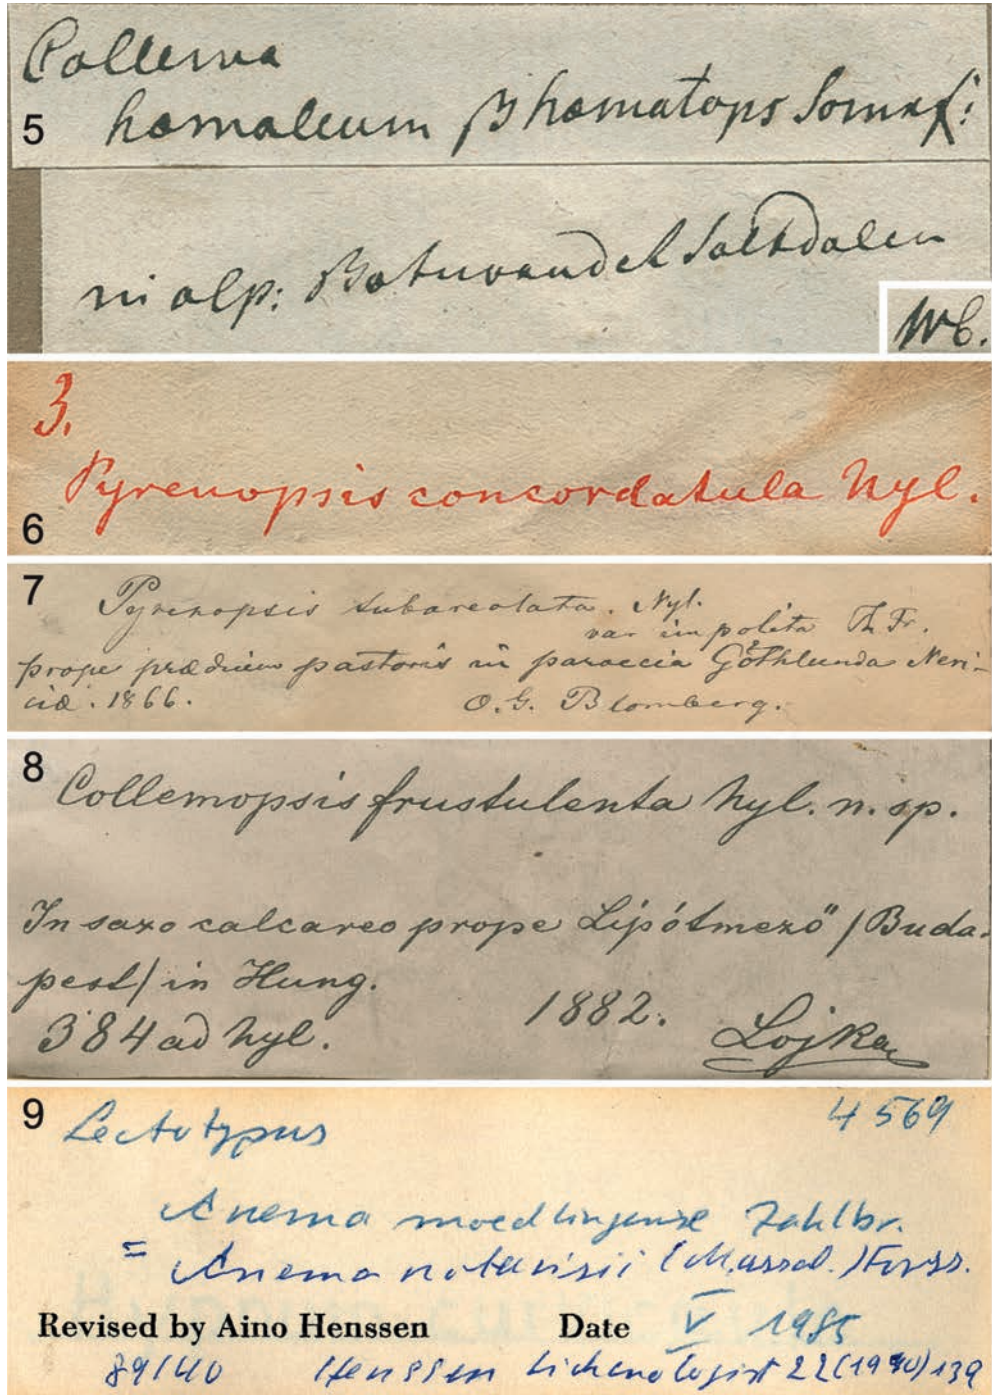 Collema
5 hæmaleum β hæmatops Somrf:
in alp: Saltdalen
Wb.
3.
Pyrenopsis concordatula Nyl.
6
7 Pyrenopsis subareolata. Nyl.
var impolita Th. Fr.
prope prædium pastoris in paroecia Göthlunda Neri-
ciæ. 1866. O. G. Blomberg.
8 Collemopsis frustulenta Nyl. n. sp.
In saxo calcareo prope Lipótmező /Buda-
pest/ in Hung.
384 ad Nyl. 1882. Lojka
9 Lectotypus 4569
Anema moedlingense Zahlbr.
= Anema notarisii (Massal.) Forss.
Revised by Aino Henssen Date V 1985
89/40 Henssen Lichenologist 22 (1990) 139